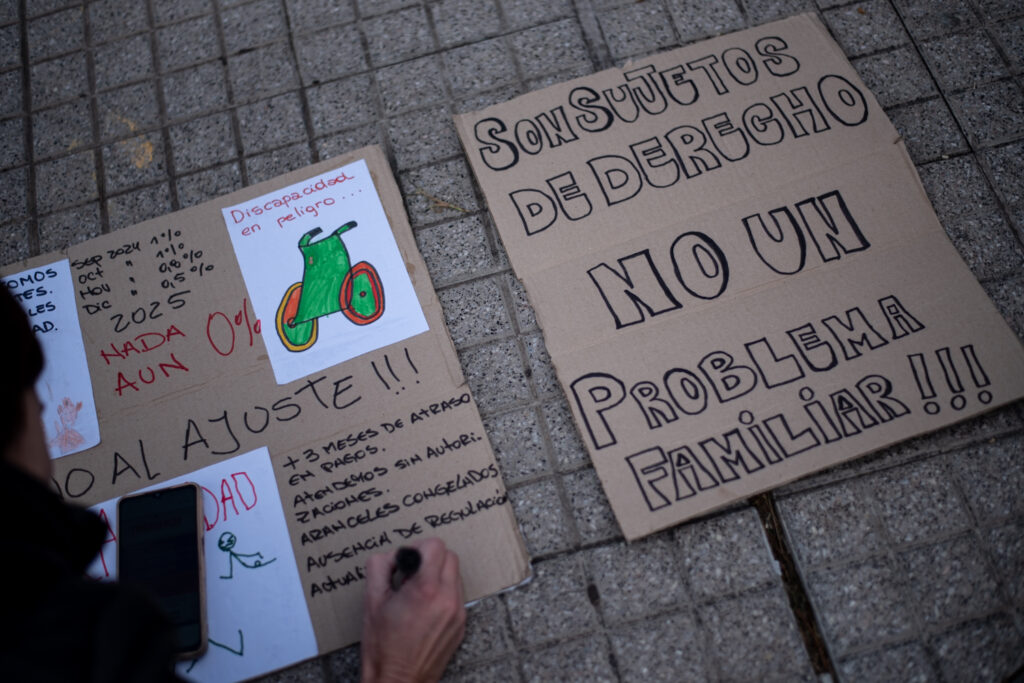 OMOS
TES.
LES
AD.
SEP 2024 1%
oct " 0,8%
Nov " 0,5%
Dic "
2025
NADA 0%
AUN
Discapacidad
en peligro...
NO AL AJUSTE!!!
DAD
+ 3 MESES DE ATRASO
EN PAGOS.
ATENDEMOS SIN AUTORI-
ZACIONES.
ARANCELES CONGELADOS
AUSENCIA DE REGULACIÓN
ACTUALI
SON SUJETOS
DE DERECHO
NO UN
PROBLEMA
FAMILIAR!!!